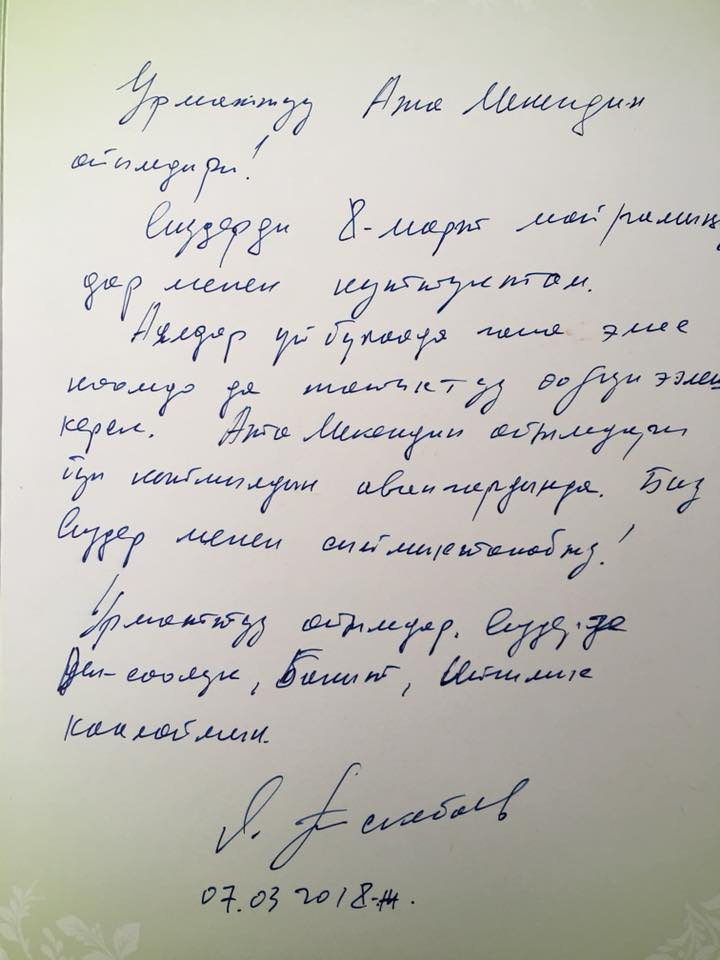 Урматтуу Ата Мекендин
айымдары!
Сиздерди 8-март майрамың
дар менен куттуктап.
Аялдар үй бүлөөдө гана эмес
коомдо да татыктуу ээлеш
керек. Ата Мекендин айымдары
бул кыймылдын авангардында. Биз
Сиздер менен сыймыктанабыз!
Урматтуу айымдар. Сиздерге
Ден-соолук, Бакыт, Ийгилик
каалаймын.
07.03 2018-ж.